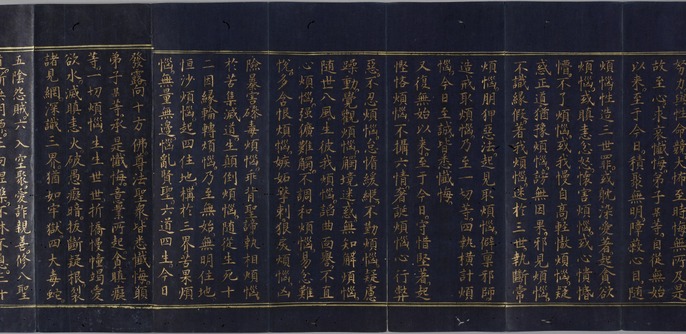 努力與性命競大怖至時悔無所及是
故至心求哀懺悔弟子某等自從無始
以來至于今日積聚無明障蔽心目隨
煩惱性造三世罪或躭深愛著起貪欲
煩惱或瞋恚忿怒懷害煩惱或心憒惛
懵不了煩惱或我慢自高輕慠煩惱疑
惑正道猶豫煩惱謗無因果邪見煩惱
不識緣假著我煩惱迷於三世執斷常
煩惱朋狎惡法起見取煩惱僻稟邪師
造戒取煩惱乃至一切等四執橫計煩
惱今日至誠皆悉懺悔
又復無始以來至于今日守惜堅著起
慳悋煩惱不攝六情奢誕煩惱心行弊
惡不忍煩惱怠惰緩縱不勤煩惱疑慮
躁動覺觀煩惱觸境迷惑無知解煩惱
隨世八風生彼我煩惱諂曲面譽不直
心煩惱強獷難觸不調和煩惱易忿難
悅多含恨煩惱嫉妬擊剌狠戾煩惱凶
險暴害磣毒煩惱乖背聖諦執相煩惱
於苦集滅道生顛倒煩惱隨從生死十
二因緣輪轉煩惱乃至無始無明住地
恒沙煩惱起四住地構於三界苦果煩
惱無量無邊惱亂賢聖六道四生今日
發露向十方佛尊法聖衆皆悉懺悔願
弟子某等承是懺悔意業所起貪瞋癡
等一切煩惱生生世世折憍慢幢竭愛
欲水滅瞋恚火破愚癡暗拔斷疑根裂
諸見網深識三界猶如牢獄四大毒蛇
五陰怨賊六入空聚愛詐親善修八聖